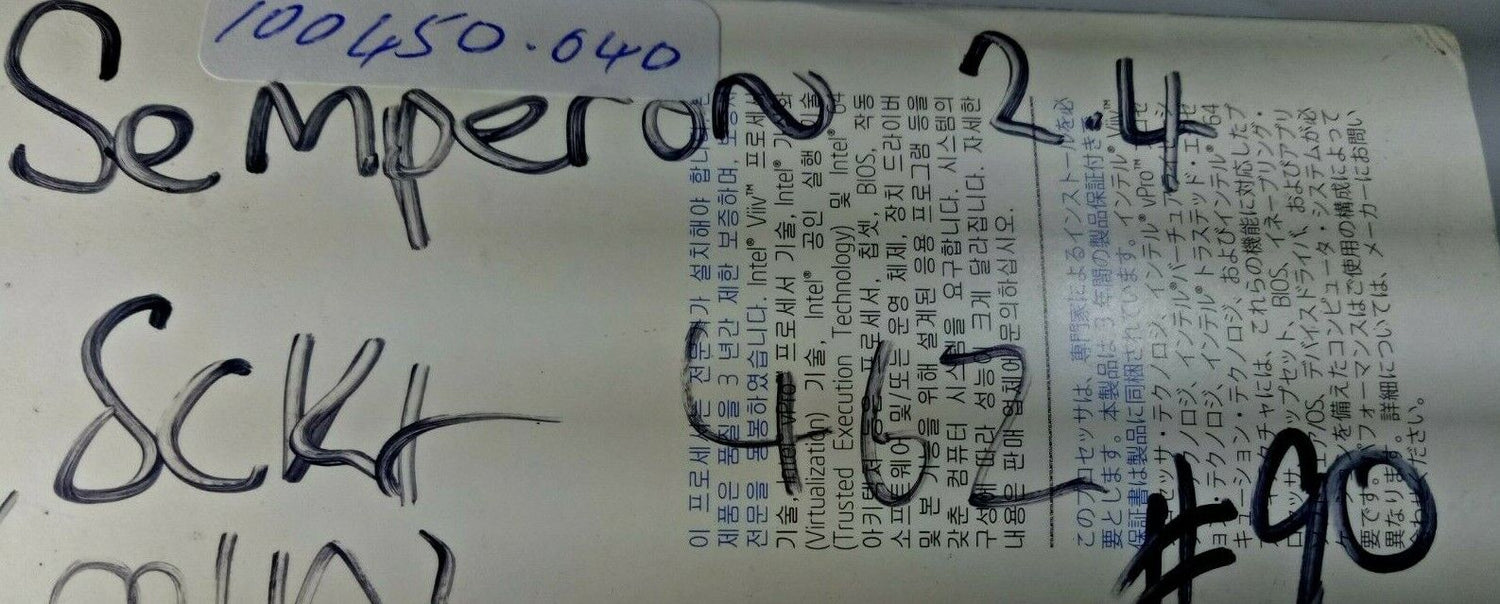 100450.040
Semperon 2.4
Sckt 462
#90
이 프로세서는 전문가가 설치해야 합니다
제품은 품질을 3 년간 제한 보증하며, 보증서
전문을 동봉하였습니다. Intel® Viiv™ 프로세서
기술, Intel® vPro™ 프로세서 기술, Intel® 가상화
(Virtualization) 기술, Intel® 공인 실행 기술
(Trusted Execution Technology) 및 Intel® 64
아키텍처 프로세서, 칩셋, BIOS, 작동
소프트웨어 및/또는 운영 체제, 장치 드라이버
및 본 기능을 위해 설계된 응용 프로그램 등을
갖춘 컴퓨터 시스템을 요구합니다. 시스템의
구성에 따라 성능이 크게 달라집니다. 자세한
내용은 판매 업체에 문의하십시오.
このプロセッサは、専門家によるインストールを必
要とします。本製品は3 年間の製品保証付きで
保証書は製品に同梱されています。インテル® Viiv™
プロセッサ・テクノロジ、インテル® vPro™
テクノロジ、インテル® バーチュア
ョン・テクノロジ、インテル® トラステッド・エ
キューション・テクノロジ、およびインテル® 64
アーキテクチャには、これらの機能に対応したプ
ロセッサ、チップセット、BIOS、イネーブリング・
ソフトウェア/OS、デバイスドライバ、およびアプリ
ケーションを備えたコンピュータ・システムが必
要です。パフォーマンスはご使用の構成によって
異なります。詳細については、メーカーにお問い
合わせください。